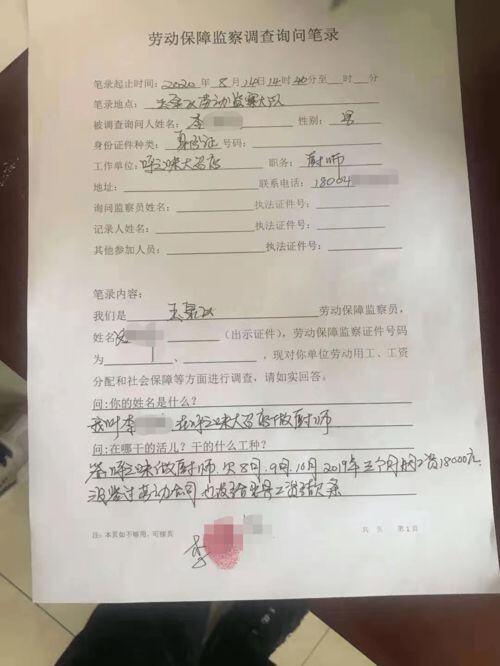 劳动保障监察调查询问笔录
笔录起止时间：2020年8月14日14时40分至__时__分
笔录地点：玉泉区劳动监察大队
被调查询问人姓名：李 性别：男
身份证件种类：身份证 号码：
工作单位：味大酒店 职务：厨师
地址： 联系电话：18004
询问监察员姓名： 执法证件号：
记录人姓名： 执法证件号：
其他参加人员： 执法证件号：
笔录内容：
我们是 玉泉区 劳动保障监察员，
姓名 （出示证件），劳动保障监察证件号码
为 、 ，现对你单位劳动用工、工资
分配和社会保障等方面进行调查，请如实回答。
问:你的姓名是什么？
我叫李 在 味大酒店做厨师
问:在哪干的活儿？干的什么工种？
答 味做厨师 欠8月.9月.10月 2019年三个月的工资18000元
没签过劳动合同 也没给出具工资欠条
注：本页如不够用，可续页 共 页 第1页
李